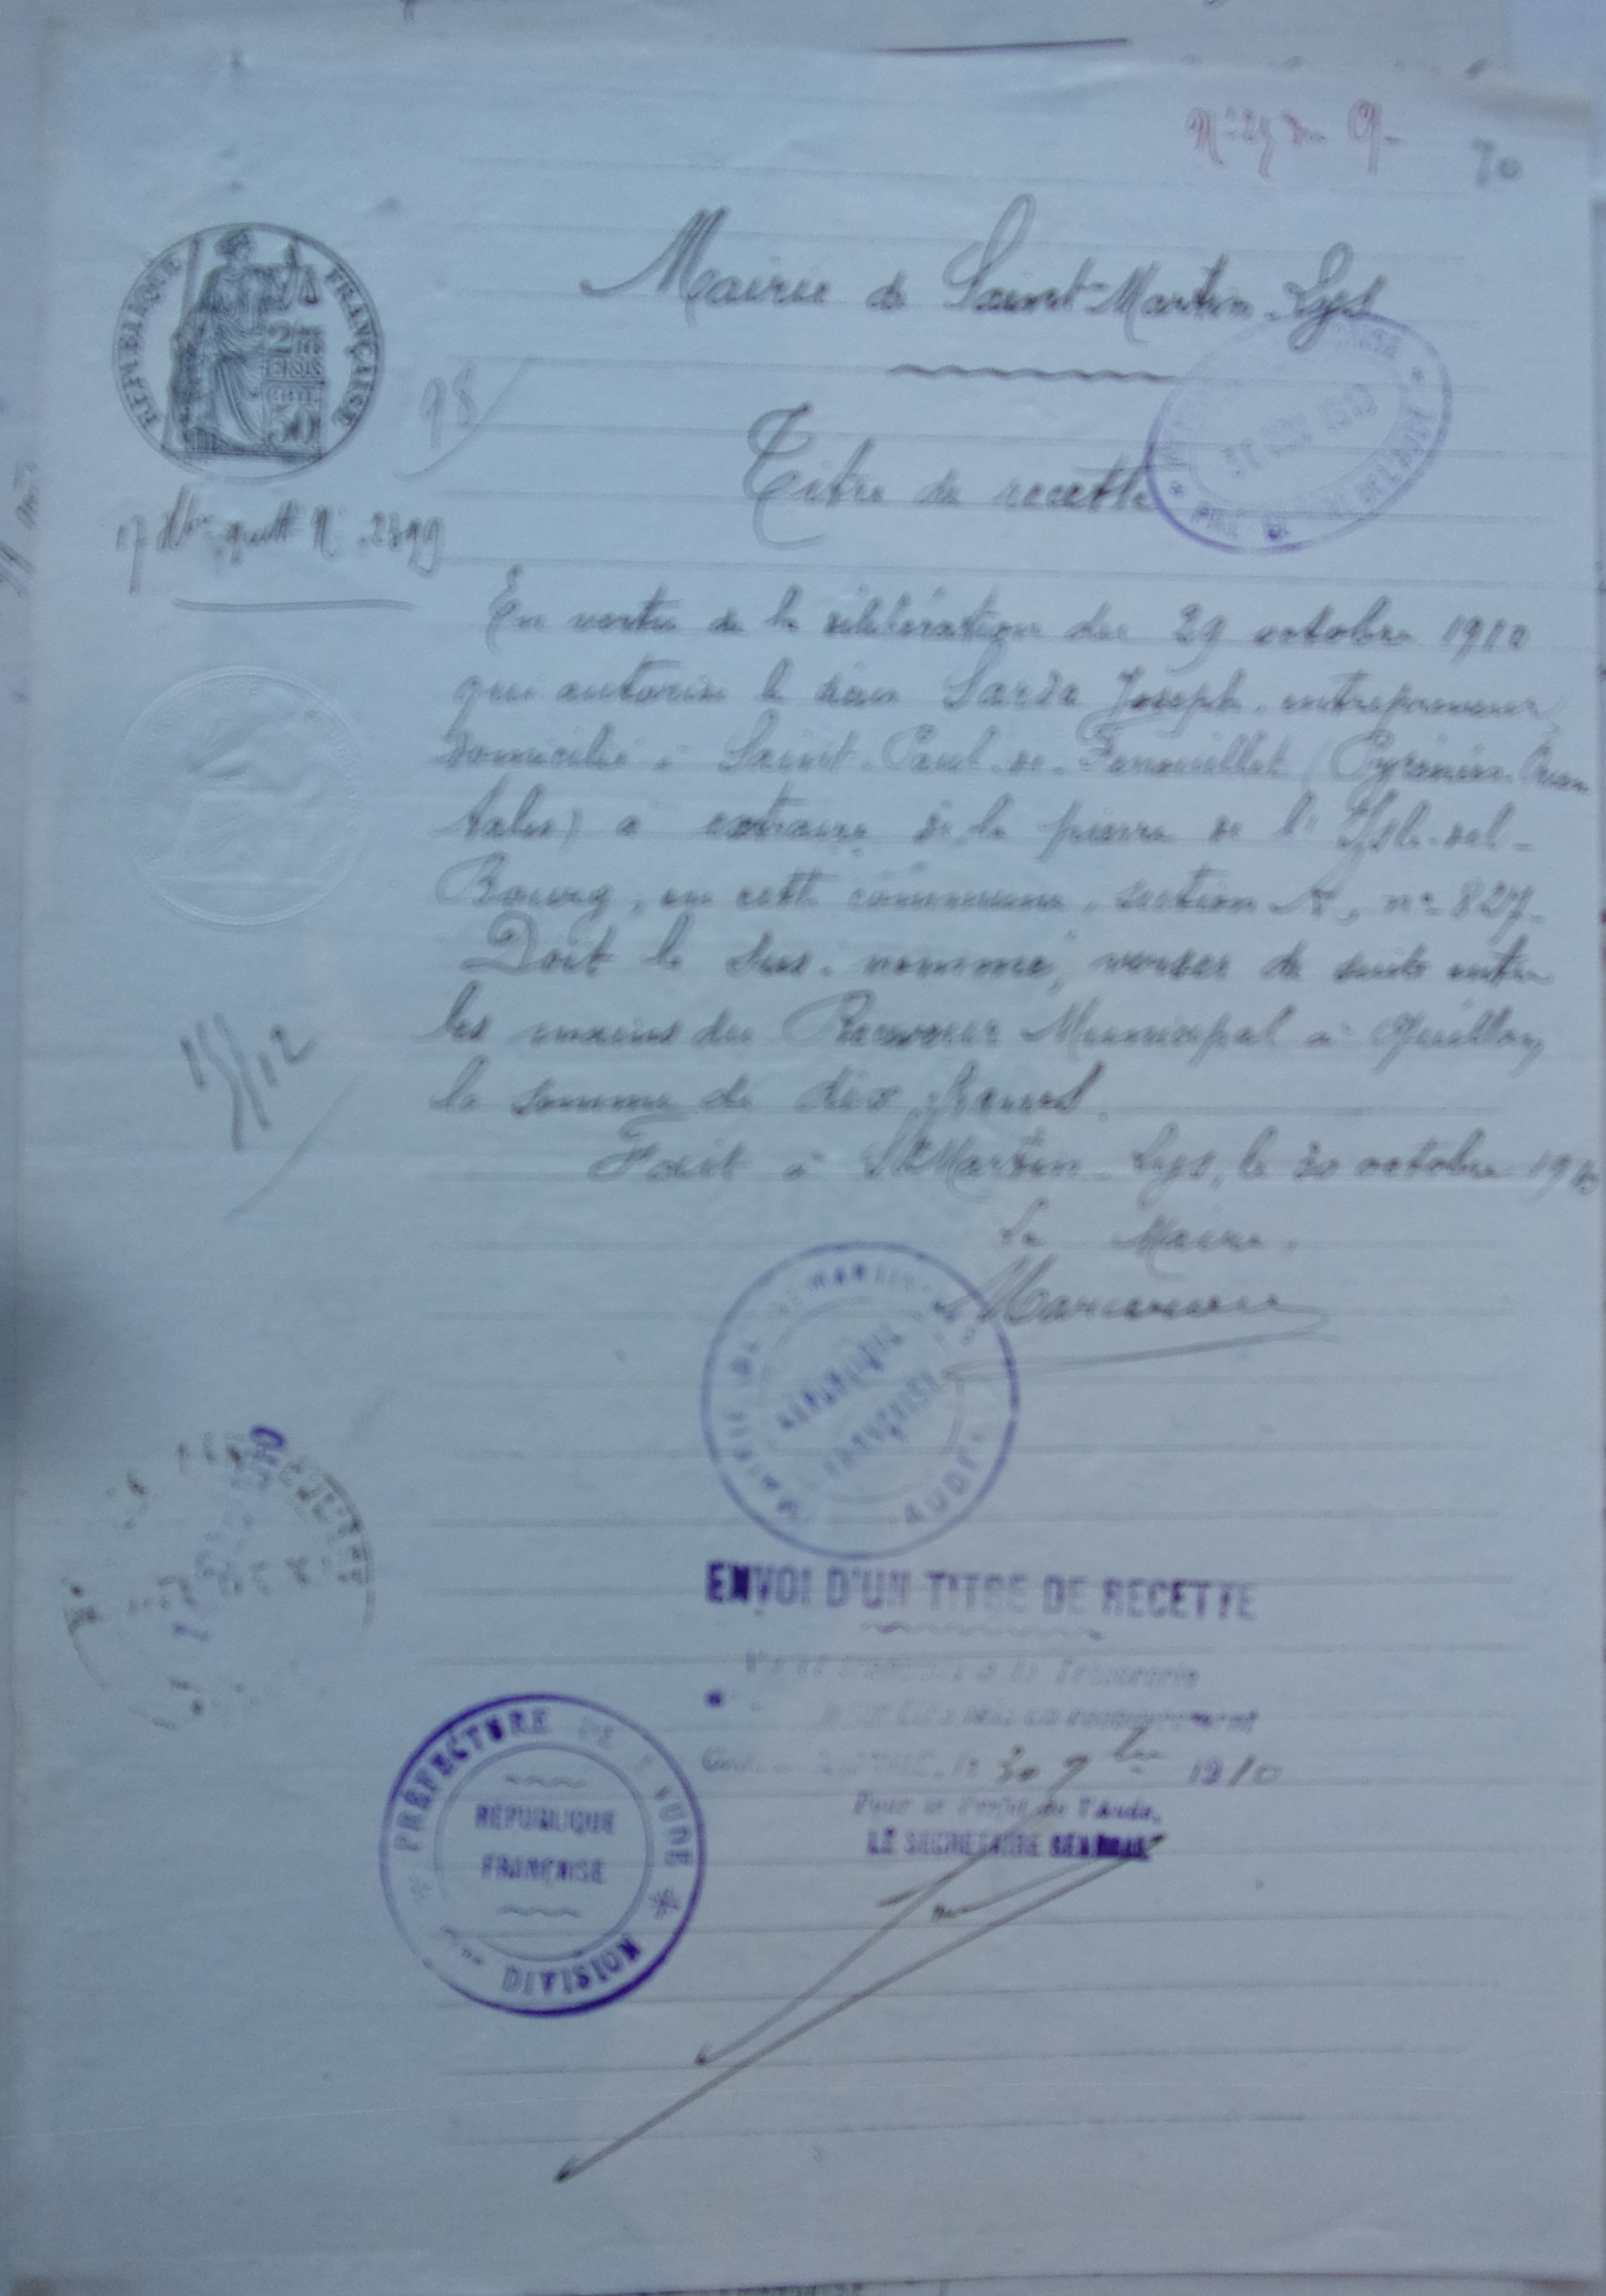 70
Mairie de Saint-Martin-Lys
RÉPUBLIQUE FRANÇAISE
50
98
Titre de recette
17 Xbre quitt N° 2399
En vertu de la délibération du 29 octobre 1910
qui autorise le sieur Sarda Joseph, entrepreneur,
domicilié à Saint-Paul-de-Fenouillet (Pyrénées-Orien
tales) à extraire de la pierre de l'Isle-del-
Bourg, en cette commune, section A, n° 827-
Doit le sus-nommé, verser de suite entre
les mains du Receveur Municipal à Quillan,
la somme de dix francs.
15/12
Fait à St Martin-Lys, le 30 octobre 1910
Le Maire.
MAIRIE DE ST MARTIN-LYS
RÉPUBLIQUE
FRANÇAISE
AUDE
ENVOI D'UN TITRE DE RECETTE
Vu et transmis à la Trésorerie
pour être mis en recouvrement
le 30 9bre 1910
Pour le Préfet de l'Aude,
LE SECRÉTAIRE GÉNÉRAL
PRÉFECTURE DE L'AUDE
RÉPUBLIQUE
FRANÇAISE
DIVISION